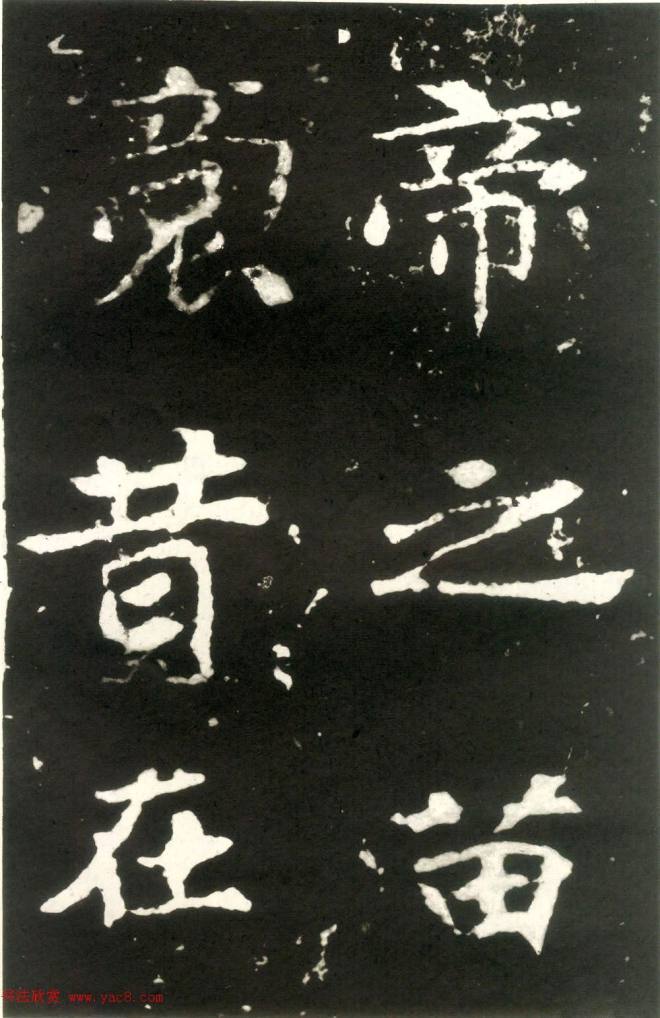 帝之苗
裔昔在
书法欣赏 www.yac8.com